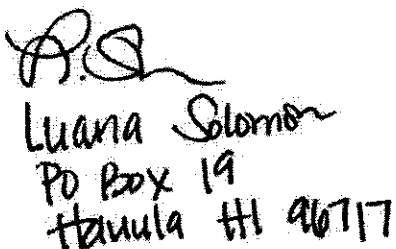 L. Sol
Luana Solomon
PO Box 19
Hauula HI 96717